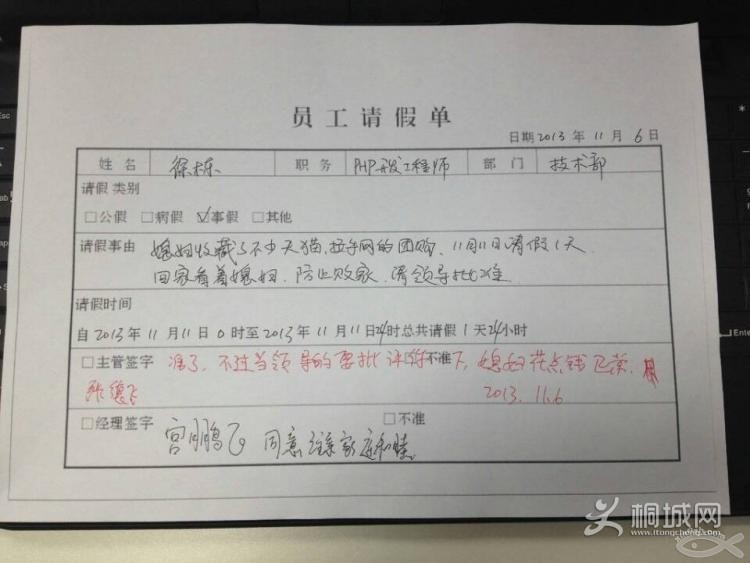 员工请假单
日期2013年11月6日
姓名 徐栋 职务 PHP开发工程师 部门 技术部
请假类别
□公假 □病假 ☑事假 □其他
请假事由 媳妇收藏了不少天猫,拉手网的团购,11月11日请假1天
回家看着媳妇,防止败家,请领导批准
请假时间
自2013年11月11日0时至2013年11月11日24时总共请假1天24小时
□主管签字 准了,不过当领导的要批评你下,媳妇花点钱 □不准
张德飞 2013.11.6
□经理签字 □不准
宫鹏飞 同意 家庭和睦
桐城网
www.itongcheng.com
Esc
Tab
Caps